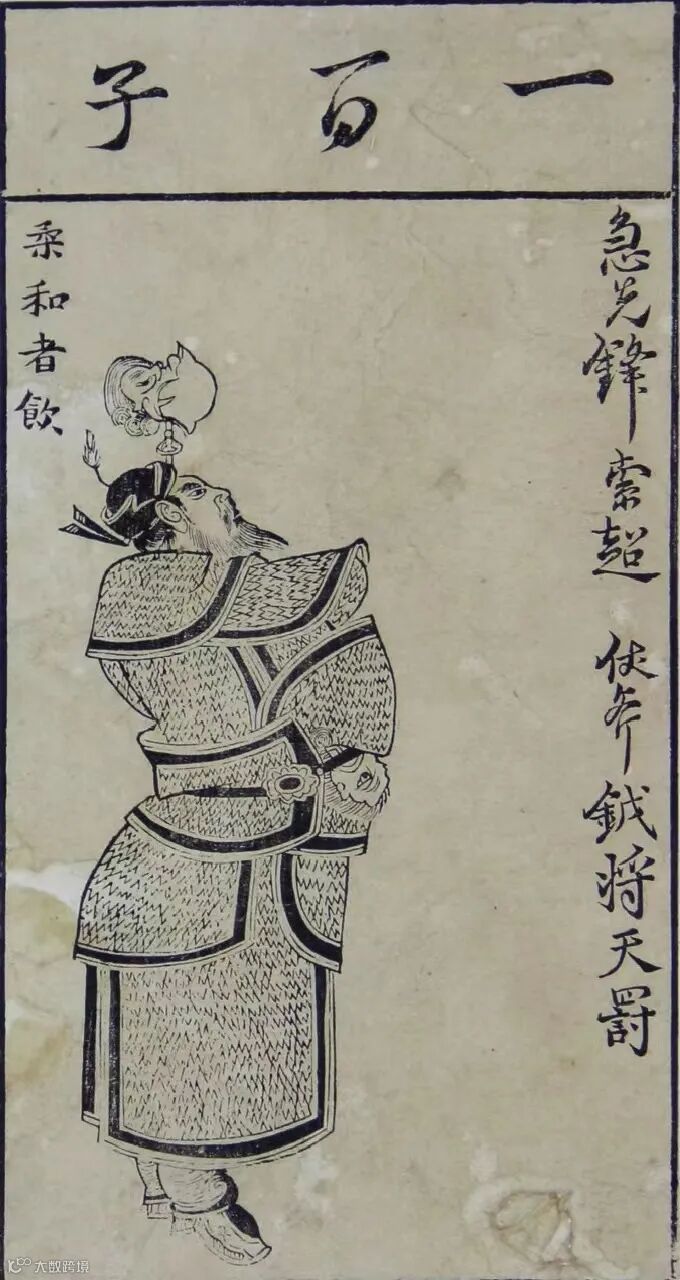 一百子
急先鋒索超 仗斧鉞將天罸
柔和者飲
大数跨境